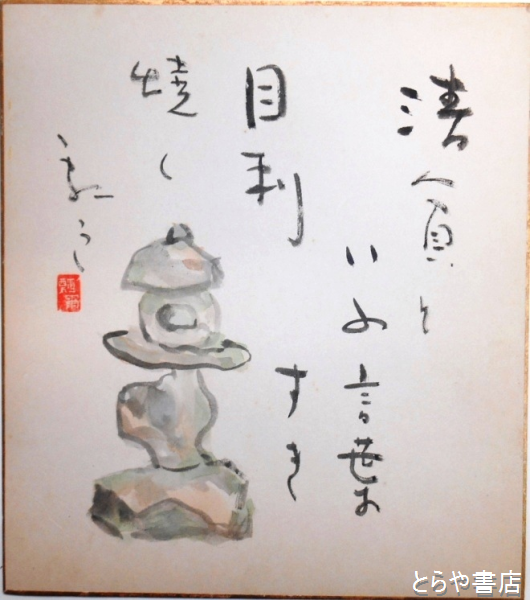 清貧と
いふ言葉
すき
目刺
焼く
とらや書店